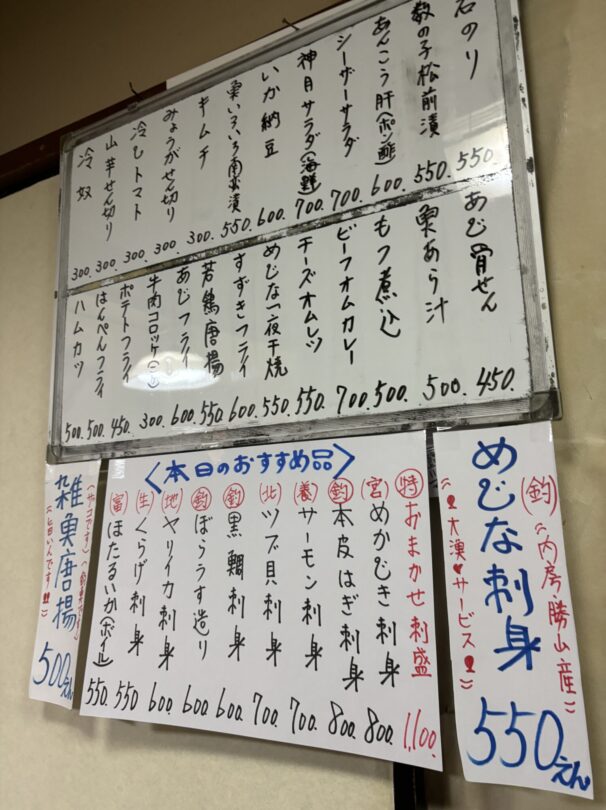 岩のり 550.
数の子松前漬 550.
あんこう肝(ポン酢) 600.
シーザーサラダ 700.
神目サラダ(海鮮) 700.
いか納豆 600.
いろいろ南蛮漬 550.
キムチ 300.
みょうがせん切り 300.
冷しトマト 300.
山芋せん切り 300.
冷奴 300.
あじ骨せん 450.
魚あら汁 500.
もつ煮込 500.
ビーフオムカレー 700.
チーズオムレツ 550.
めじな一夜干焼 550.
すずきフライ 600.
若鶏唐揚 550.
あじフライ 600.
牛肉コロッケ(二) 300.
ポテトフライ 450.
はんぺんフライ 500.
ハムカツ 500.
(釣)〝内房・勝山産〟
めじな刺身 550えん
〝大漁♥サービス〟
〈本日のおすすめ品〉
(特)おまかせ刺盛 1,100.
(宮)めかじき刺身 800.
(釣)本皮はぎ刺身 800.
(養)サーモン刺身 700.
(北)ツブ貝刺身 700.
(釣)黒鯛刺身 600.
(釣)ぼらうす造り 600.
(地)ヤリイカ刺身 600.
(生)くらげ刺身 550
(富)ほたるいか(ボイル) 550.
雑魚唐揚 500えん